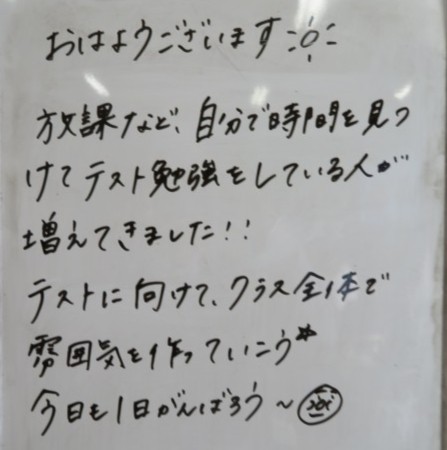 おはようございます
放課など、自分で時間を見つ
けてテスト勉強をしている人が
増えてきました!!
テストに向けて、クラス全体で
雰囲気を作っていこう
今日も1日がんばろう~